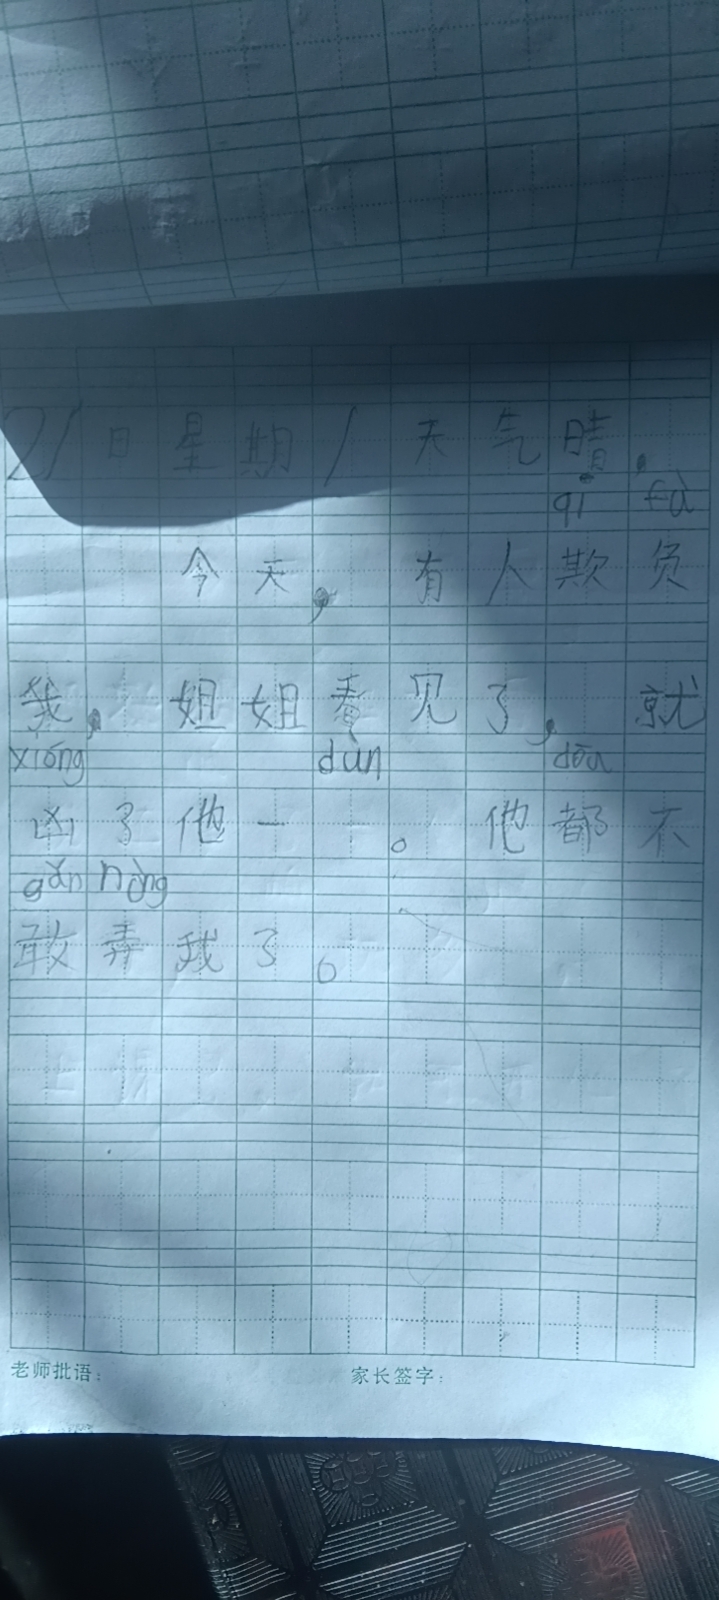 21日星期1天气晴.
qī fù
今天,有人欺负
我,姐姐看见了,就
xiōng dùn dōu
凶了他一 。他都不
gǎn nòng
敢弄我了。
老师批语: 家长签字: